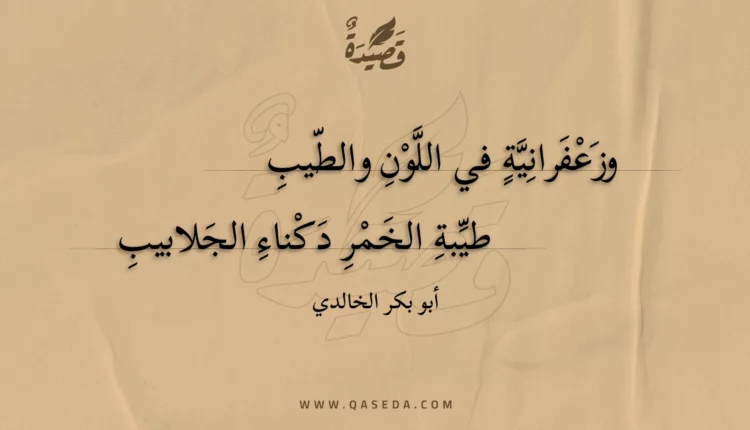 قَصِيْدَةٌ
وزَعْفَرانِيَّةٍ في اللَّوْنِ والطّيبِ
طيِّبةِ الخَمْرِ دَكْناءِ الجَلابيبِ
أبو بكر الخالدي
WWW.QASEDA.COM